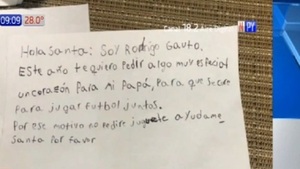 09:09 28.2°
PY
Hola Santa: Soy Rodrigo Gauto.
Este año te quiero Pedir algo muy especial
un corazón Para mi Papá, Para que
Para jugar futbol juntos.
Por ese motivo no Pedire juguete ayudame
Santa Por favor